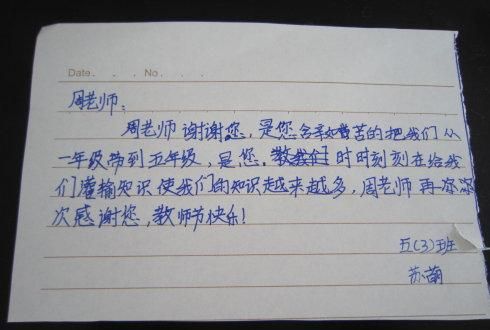 Date. . . No. . .
周老师:
周老师谢谢您,是您含辛如苦的把我们从
一年级带到五年级,是您,时时刻刻在给我
们灌输知识使我们的知识越来越多,周老师再一次
次感谢您,教师节快乐!
五(3)班
苏萌